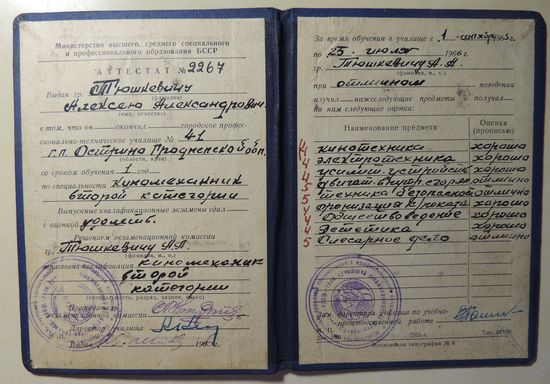 Министерство высшего, среднего специального
и профессионального образования БССР
АТТЕСТАТ № 2267
Выдан гр. Тюшкевичу
(фамилия)
Алексею Александрович
(имя, отчество)
в том, что он окончил городское професс-
сионально-техническое училище № 41
г.п. Острино Гродненской обл.
(область, край)
со сроком обучения 1 год
по специальности киномеханик
второй категории
Выпускные квалификационные экзамены сдал
с оценкой
Решением экзаменационной комиссии
гр. Тюшкевичу А.А.
(фамилия, и., о.)
присвоена квалификация киномеханик
второй
категории
(специальность, разряд, звание, класс)
Председатель
экзаменационной комиссии
Директор училища
За время обучения в училище с 1 сентября 1965 г.
по 25 июля 1966 г.
гр. Тюшкевич А.А.
(фамилия, и., о.)
при отличном поведении
изучил нижеследующие предметы и получил
по ним следующие оценки:
Наименование предмета
Оценка
(прописью)
4 кинотехника хорошо
4 электротехника хорошо
4 усилит. устройства хорошо
5 двигат. внутр. сгоран. отлично
5 техника безопасной отлично
5 организация кинопоказа отлично
4 Обществоведение хорошо
4 Эстетика хорошо
5 Слесарное дело отлично
Зам. директора училища по учебно-
производственной работе
М. П.
Московская типография № 8